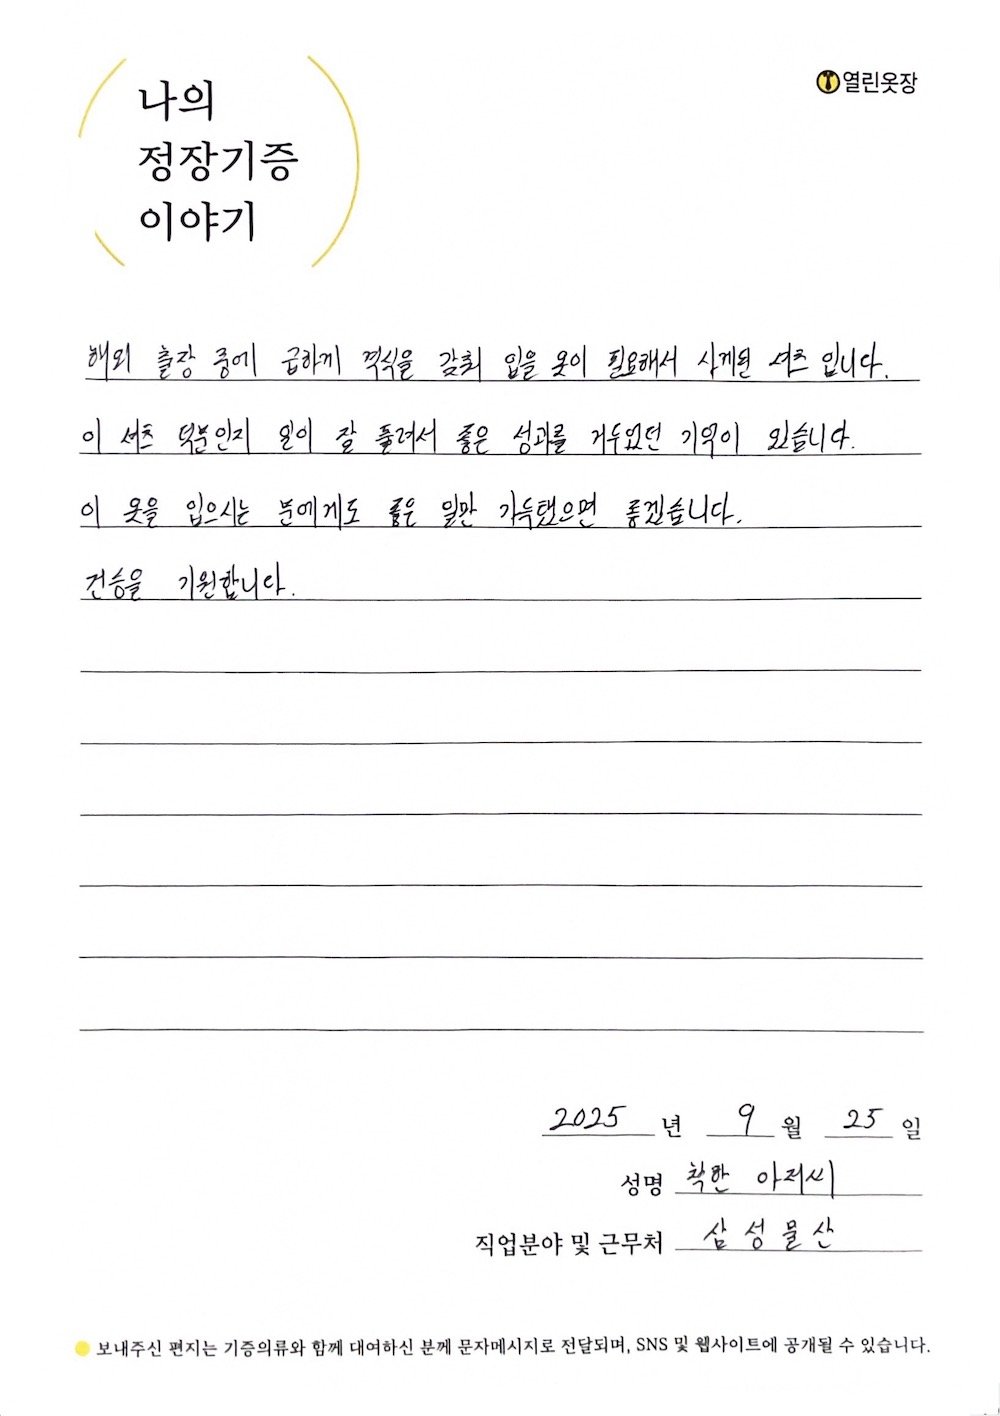 나의
정장기증
이야기
열린옷장
해외 출장 중에 급하게 격식을 갖춰 입을 옷이 필요해서 사게된 셔츠 입니다.
이 셔츠 덕분인지 일이 잘 풀려서 좋은 성과를 거두었던 기억이 있습니다.
이 옷을 입으시는 분에게도 좋은 일만 가득했으면 좋겠습니다.
건승을 기원합니다.
2025 년 9 월 25 일
성명 착한 아저씨
직업분야 및 근무처 삼성물산
보내주신 편지는 기증의류와 함께 대여하신 분께 문자메시지로 전달되며, SNS 및 웹사이트에 공개될 수 있습니다.